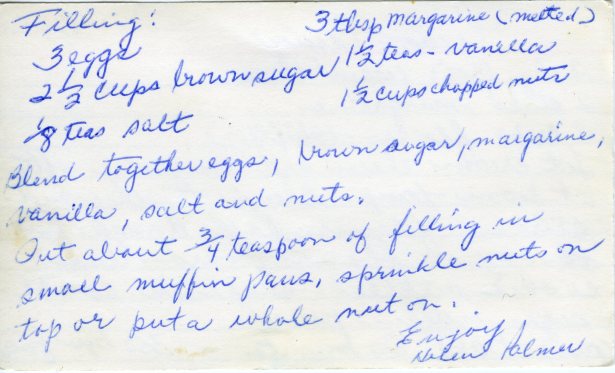 Filling:
3 eggs
2 1/2 cups brown sugar
1/8 teas salt
3 tbsp margarine (melted)
1 1/2 teas - vanilla
1 1/2 cups chopped nuts
Blend together eggs, brown sugar, margarine,
vanilla, salt and nuts.
Put about 3/4 teaspoon of filling in
small muffin pans, sprinkle nuts on
top or put a whole nut on.
Enjoy!
Helen Palmer